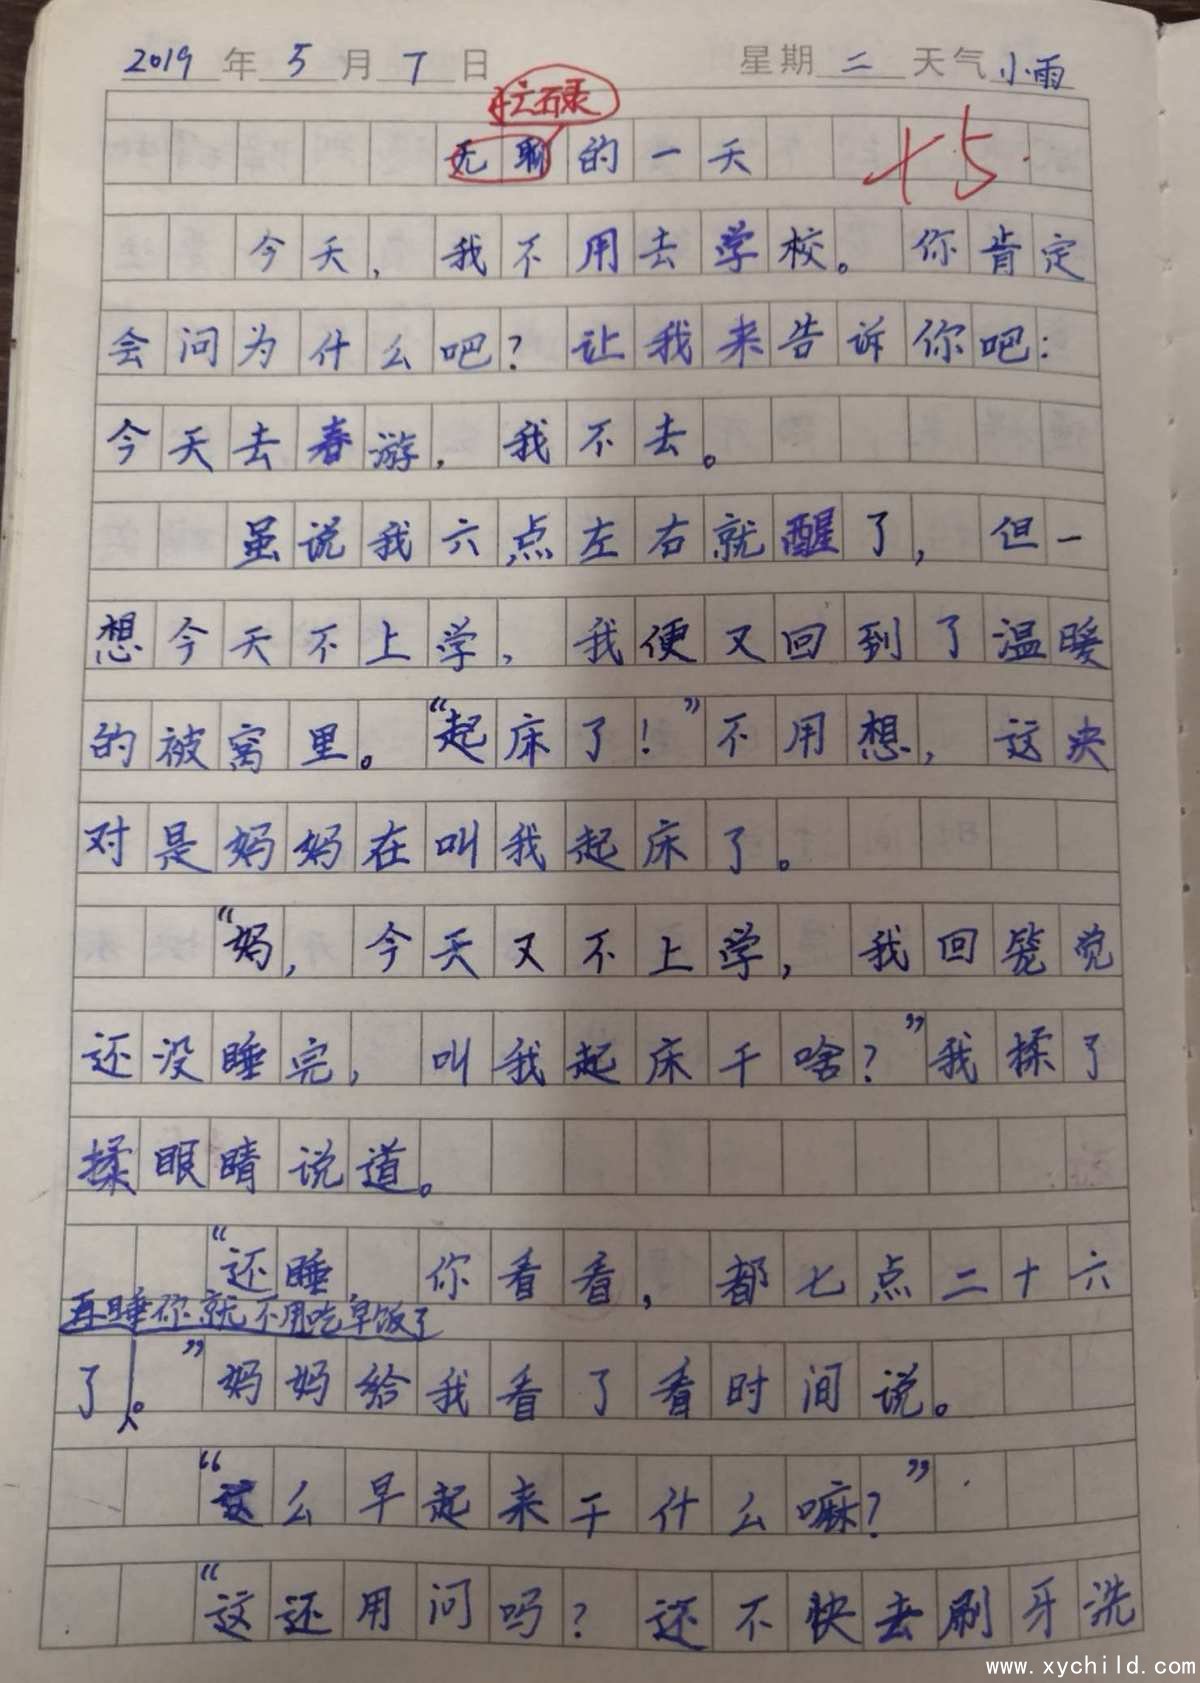 2019年5月7日 星期二 天气小雨
忙碌
无聊的一天
+5
今天，我不用去学校。你肯定
会问为什么吧？让我来告诉你吧：
今天去春游，我不去。
虽说我六点左右就醒了，但一
想今天不上学，我便又回到了温暖
的被窝里。“起床了！”不用想，这决
对是妈妈在叫我起床了。
“妈，今天又不上学，我回笼觉
还没睡完，叫我起床干啥？”我揉了
揉眼睛说道。
“还睡 你看看，都七点二十六
再睡你就不用吃早饭了
了。”妈妈给我看了看时间说。
“这么早起来干什么嘛？”
“这还用问吗？还不快去刷牙洗
www.xychild.com